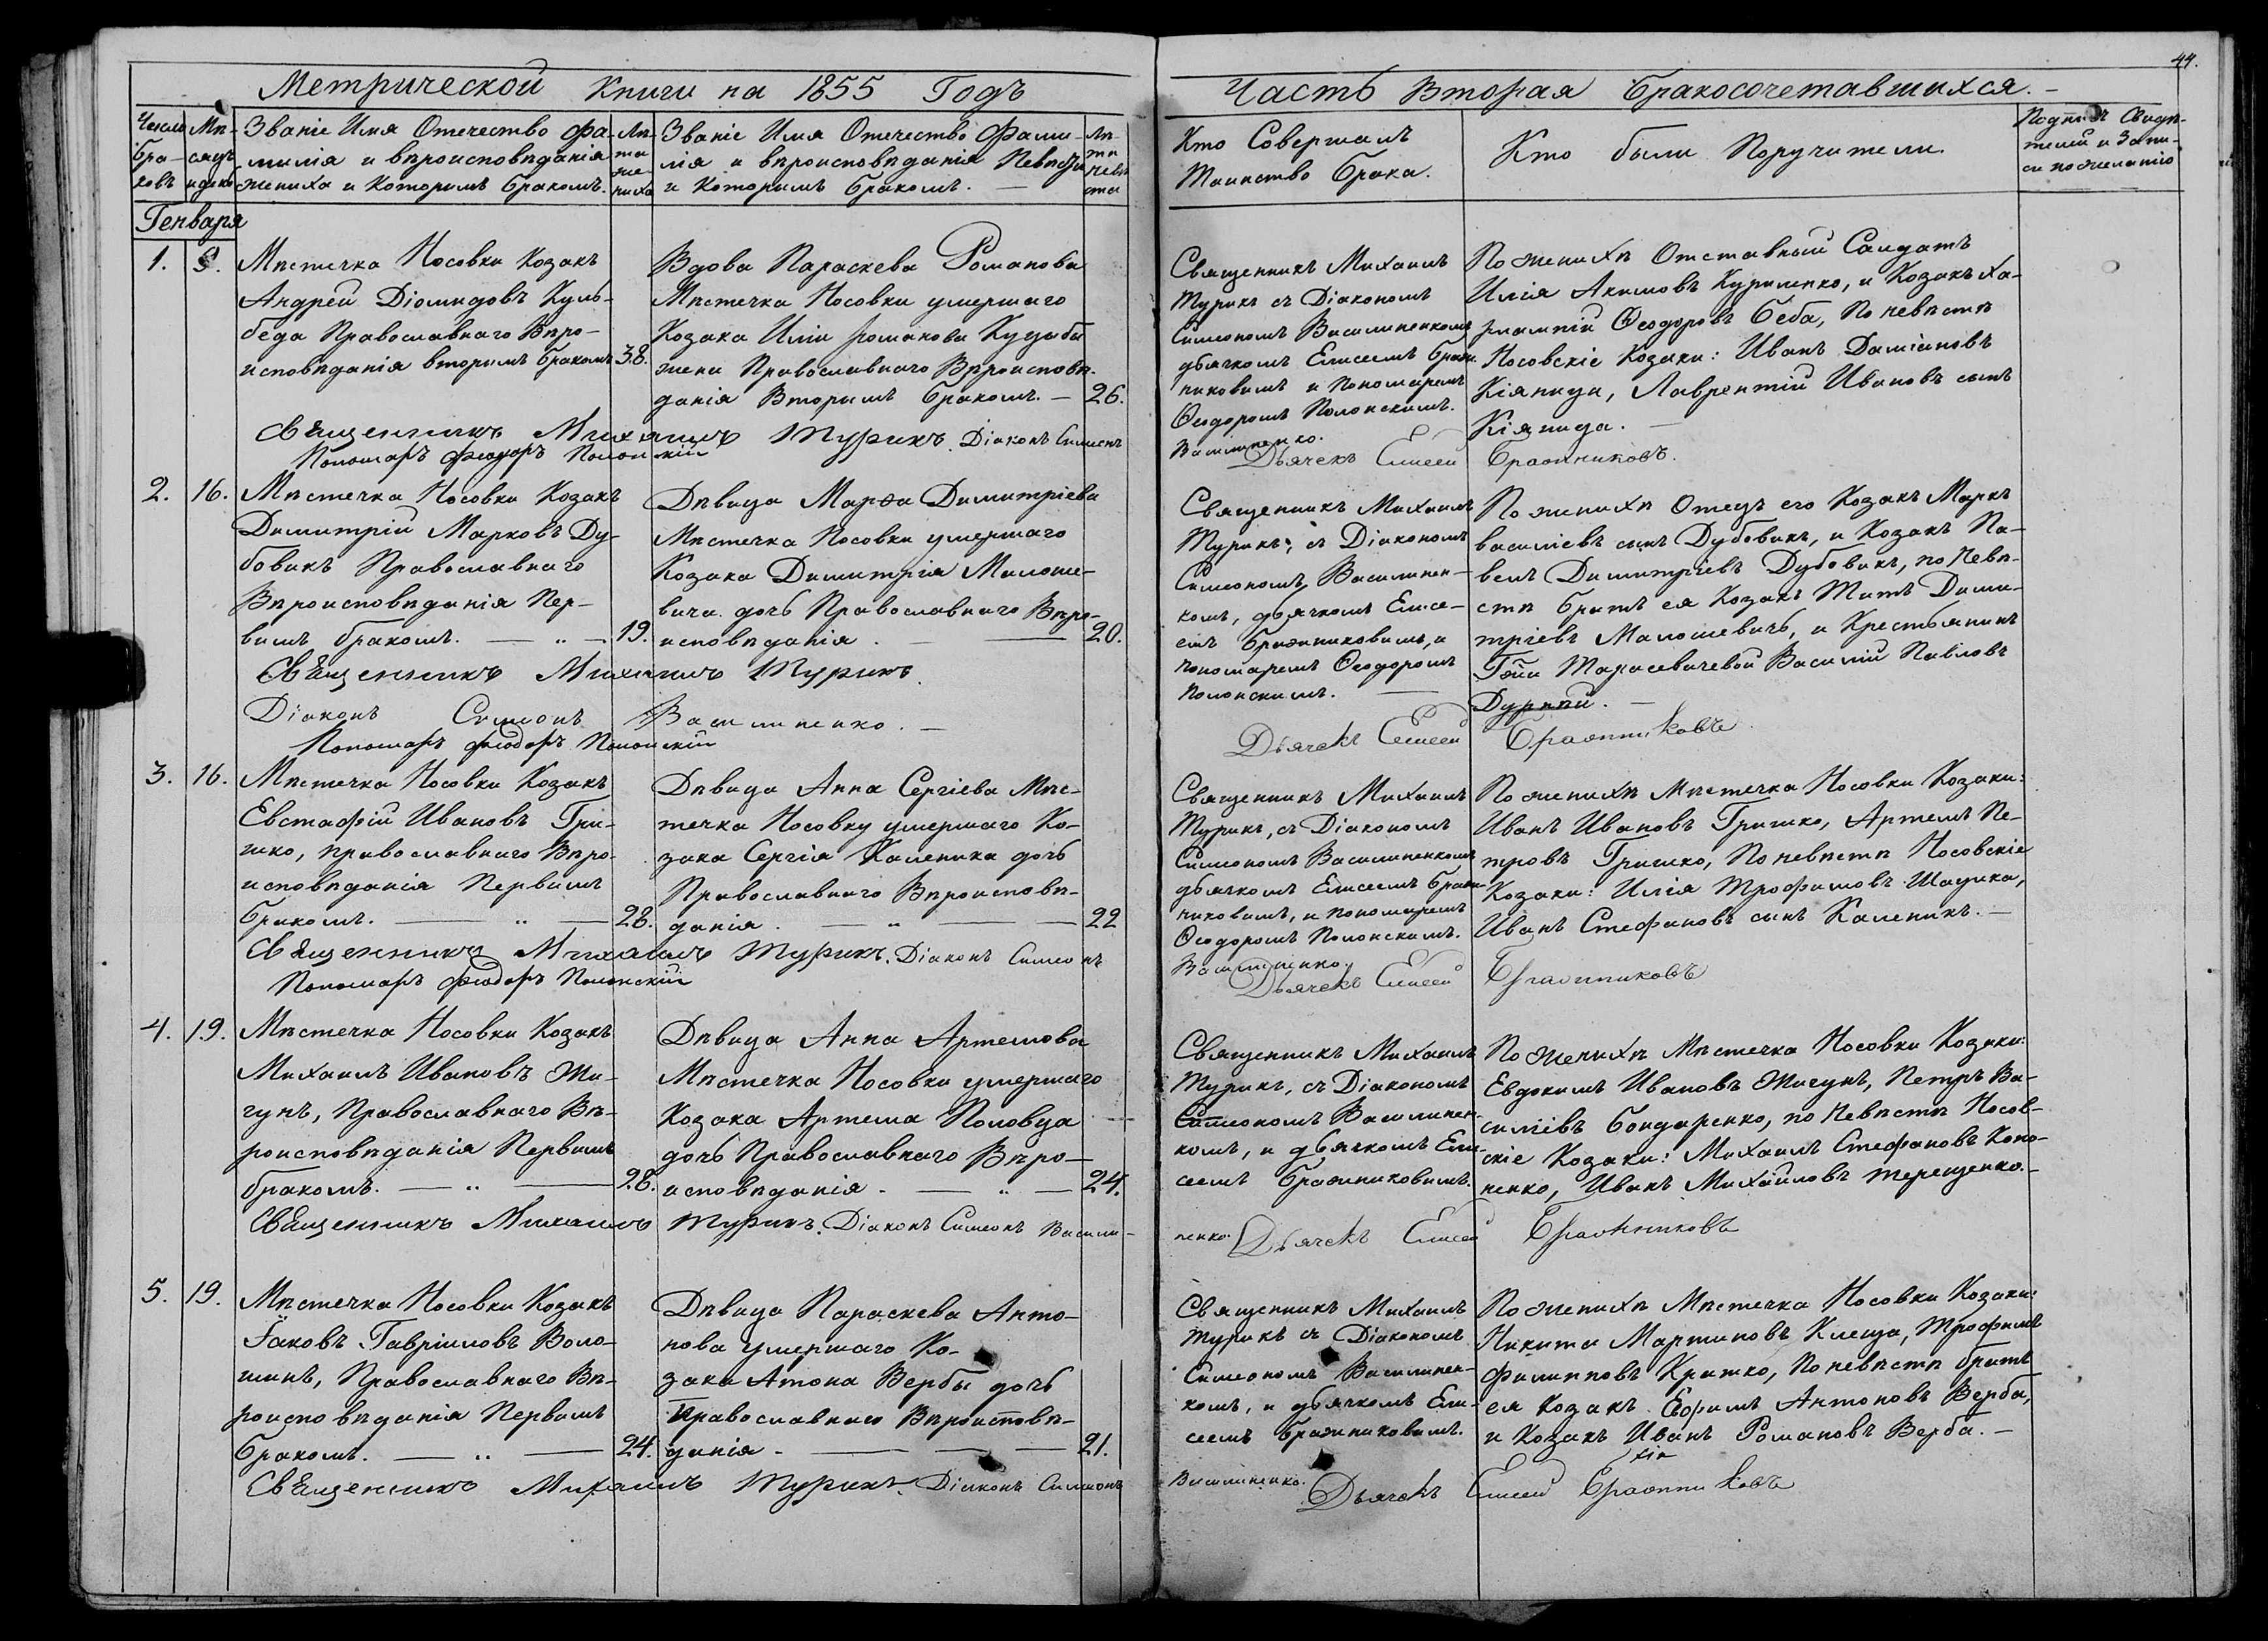 44.
Метрической Книги на 1855 Годъ
Часть Вторая Бракосочетавшихся.
Число Бра-ковъ
Мѣ-сяцъ и день
Званіе Имя Отечество Фа-
милія и вѣроисповѣданія
жениха и Которымъ бракомъ.
Лѣ-та же-ниха
Званіе Имя Отечество Фами-
лія и вѣроисповѣданія Невѣсты
и Которымъ бракомъ. —
Лѣ-та невѣ-сты
Кто Совершалъ
Таинство брака.
Кто были Поручители.
Подпись Свидѣ-
телей и Запи-
си по желанію
Генваря
1. 9.
Мѣстечка Носовки Козакъ
Андрей Діомидовъ Куль-
беда Православнаго Вѣро-
исповѣданія вторымъ бракомъ 38.
Вдова Параскева Романова
Мѣстечка Носовки умершаго
Козака Иліи Романова
жена Православнаго Вѣроисповѣ-
данія Вторымъ бракомъ. — 26.
Священникъ Михаилъ
Турикъ съ Діакономъ
Симеономъ Василиненкомъ
дьячкомъ Елисеемъ Браж-
никовымъ и Пономаремъ
Феодоромъ Полонскимъ.
По женихѣ Отставный Салдатъ
Илія Акимовъ Куриленко, и Козакъ Ха-
рлампій Феодоровъ Беба, По невѣстѣ
Носовскіе Козаки: Иванъ Даміановъ
Кіяница, Лаврентій Ивановъ сынъ
Кіяница. —
Священникъ Михаилъ Турикъ. Діаконъ Симеонъ
Василиненко.
Пономарь Феодоръ Полонскій
Дьячекъ Елисей Бражниковъ.
2. 16.
Мѣстечка Носовки Козакъ
Димитрій Марковъ Ду-
бовикъ Православнаго
Вѣроисповѣданія Пер-
вымъ бракомъ. — „ — 19.
Дѣвица Марѳа Димитріева
Мѣстечка Носовки умершаго
Козака Димитрія Малоше-
вича дочь Православнаго Вѣро-
исповѣданія. — 20.
Священникъ Михаилъ
Турикъ, съ Діакономъ
Симеономъ Василинен-
комъ, дьячкомъ Елисе-
емъ Бражниковымъ, и
пономаремъ Феодоромъ
Полонскимъ. —
По женихѣ Отецъ его Козакъ Маркъ
Василіевъ сынъ Дубовикъ, и Козакъ Па-
велъ Димитріевъ Дубовикъ, по Невѣ-
стѣ братъ ея Козакъ Титъ Дими-
тріевъ Малошевичъ, и Крестьянинъ
Гжи Тарасевичевой Василій Павловъ
Дурний. —
Священникъ Михаилъ Турикъ.
Діаконъ Симеонъ Василиненко. —
Пономарь Феодоръ Полонскій
Дьячекъ Елисей Бражниковъ.
3. 16.
Мѣстечка Носовки Козакъ
Евстафій Ивановъ Гри-
шко, православнаго Вѣро-
исповѣданія Первымъ
бракомъ. — „ — 28.
Дѣвица Анна Сергіева Мѣс-
течка Носовки умершаго Ко-
зака Сергія Каленика дочь
Православнаго Вѣроисповѣ-
данія. — „ — 22
Священникъ Михаилъ
Турикъ, съ Діакономъ
Симеономъ Василиненкомъ
дьячкомъ Елисеемъ Браж-
никовымъ, и пономаремъ
Феодоромъ Полонскимъ.
По женихѣ Мѣстечка Носовки Козаки:
Иванъ Ивановъ Гришко, Артемъ Пе-
тровъ Гришко, По невѣстѣ Носовскіе
Козаки: Илія Трофимовъ Шацика,
Иванъ Стефановъ сынъ Каленикъ. —
Священникъ Михаилъ Турикъ. Діаконъ Симеонъ
Василиненко.
Пономарь Феодоръ Полонскій
Дьячекъ Елисей Бражниковъ
4. 19.
Мѣстечка Носовки Козакъ
Михаилъ Ивановъ Жи-
гунъ, Православнаго Вѣ-
роисповѣданія Первымъ
бракомъ. — „ — 28.
Дѣвица Анна Артемова
Мѣстечка Носовки умершаго
Козака Артема Половца
дочь Православнаго Вѣро-
исповѣданія. — „ — 24.
Священникъ Михаилъ
Турикъ, съ Діакономъ
Симеономъ Василинен-
комъ, и дьячкомъ Ели-
сеемъ Бражниковымъ.
По женихѣ Мѣстечка Носовки Козаки:
Евдокимъ Ивановъ Жигунъ, Петръ Ва-
силіевъ Бондаренко, по Невѣстѣ Носов-
скіе Козаки: Михаилъ Стефановъ Коно-
ненко, Иванъ Михайловъ Терещенко.
Священникъ Михаилъ Турикъ. Діаконъ Симеонъ Васили-
ненко. Дьячекъ Елисей Бражниковъ
5. 19.
Мѣстечка Носовки Козакъ
Іаковъ Гавріиловъ Воло-
шинъ, Православнаго Вѣ-
роисповѣданія Первымъ
бракомъ. — „ — 24.
Дѣвица Параскева Анто-
нова умершаго Ко-
зака Атона Вербы дочь
Православнаго Вѣроисповѣ-
данія. — 21.
Священникъ Михаилъ
Турикъ съ Діакономъ
Симеономъ Василинен-
комъ, и дьячкомъ Ели-
сеемъ Бражниковымъ.
По женихѣ Мѣстечка Носовки Козаки:
Никита Мартиновъ Клеща, Трофимъ
Филипповъ Кришко, По невѣстѣ братъ
ея Козакъ Ефимъ Антоновъ Верба,
и Козакъ Иванъ Романовъ Верба. —
Священникъ Михаилъ Турикъ. Діаконъ Симеонъ
Василиненко. Дьячекъ Елисей Бражниковъ